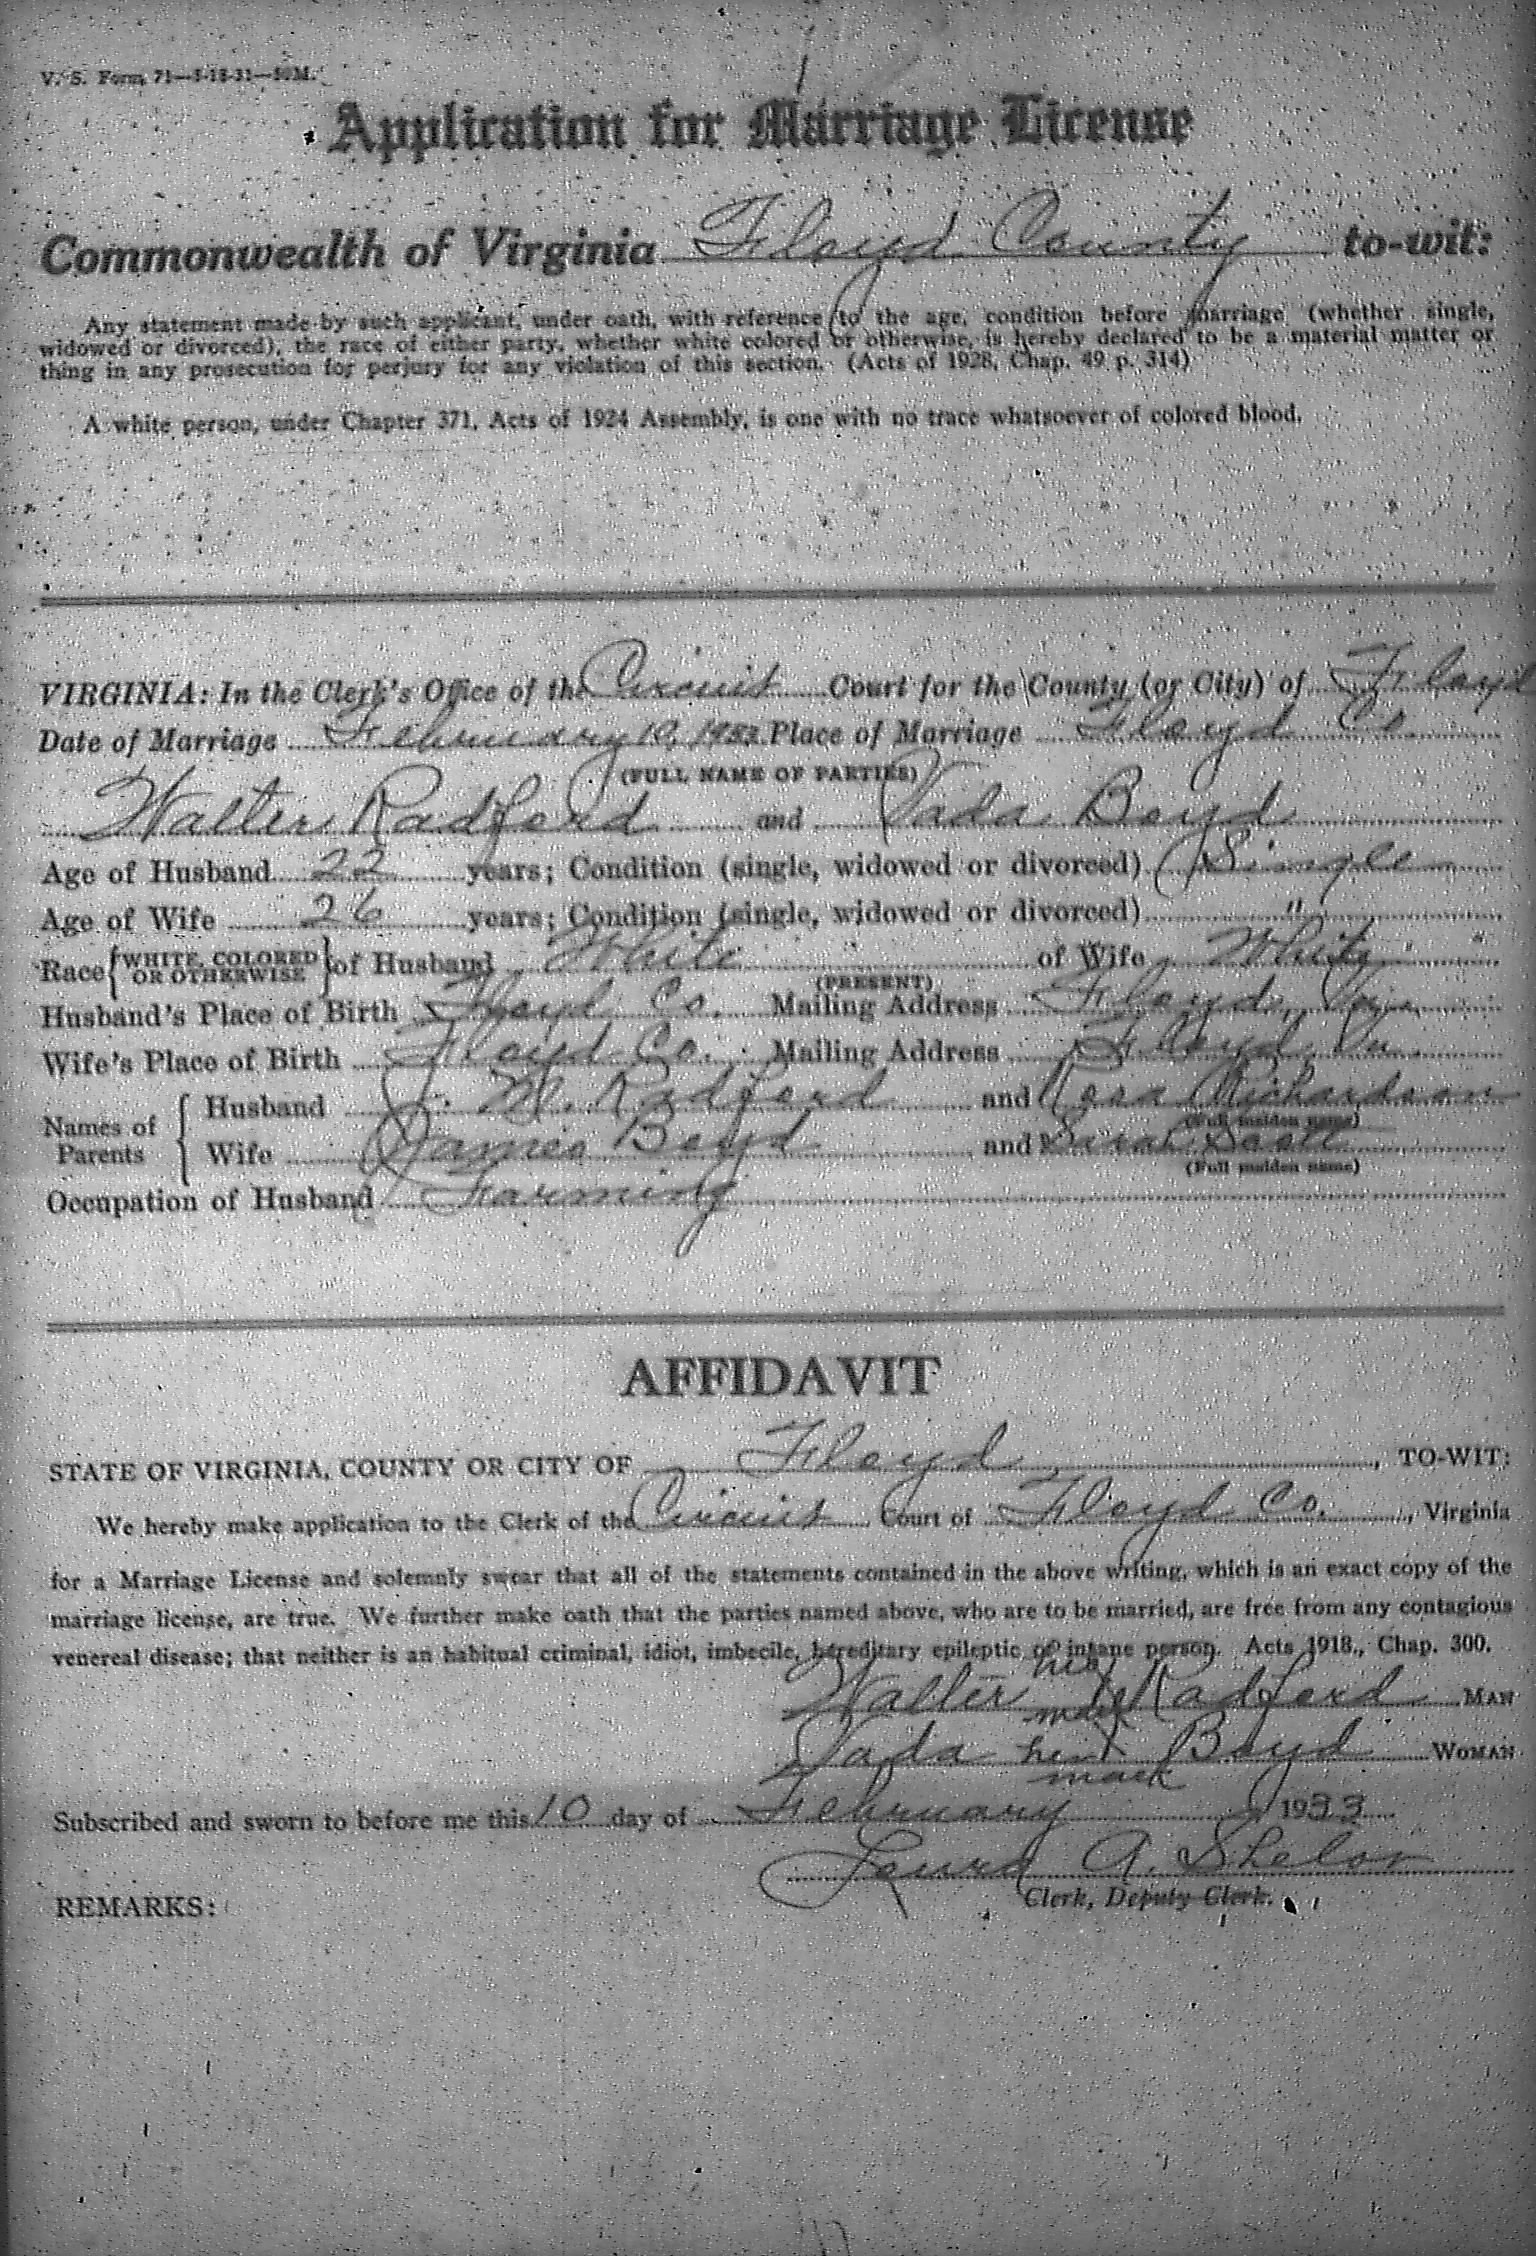 V. S. Form 71—1-18-31—50M.
Application for Marriage License
Commonwealth of Virginia Floyd County to-wit:
Any statement made by such applicant, under oath, with reference to the age, condition before marriage (whether single,
widowed or divorced), the race of either party, whether white colored or otherwise, is hereby declared to be a material matter or
thing in any prosecution for perjury for any violation of this section. (Acts of 1928, Chap. 49 p. 314)
A white person, under Chapter 371, Acts of 1924 Assembly, is one with no trace whatsoever of colored blood.
VIRGINIA: In the Clerk's Office of the Circuit Court for the County (or City) of Floyd
Date of Marriage February 10, 1933 Place of Marriage Floyd Co.
(FULL NAME OF PARTIES)
Walter Radford and Vada Boyd
Age of Husband 22 years; Condition (single, widowed or divorced) Single
Age of Wife 26 years; Condition (single, widowed or divorced) "
Race {WHITE, COLORED OR OTHERWISE} of Husband White of Wife White
(PRESENT)
Husband's Place of Birth Floyd Co. Mailing Address Floyd, Va.
Wife's Place of Birth Floyd Co. Mailing Address Floyd, Va.
Names of Parents { Husband J. W. Radford and Richardson
(Full maiden name)
Wife James Boyd and Sarah
(Full maiden name)
Occupation of Husband Farming
AFFIDAVIT
STATE OF VIRGINIA, COUNTY OR CITY OF Floyd, TO-WIT:
We hereby make application to the Clerk of the Circuit Court of Floyd Co., Virginia
for a Marriage License and solemnly swear that all of the statements contained in the above writing, which is an exact copy of the
marriage license, are true. We further make oath that the parties named above, who are to be married, are free from any contagious
venereal disease; that neither is an habitual criminal, idiot, imbecile, hereditary epileptic or insane person. Acts 1918., Chap. 300.
Walter his X mark Radford MAN
Vada her X mark Boyd WOMAN
Subscribed and sworn to before me this 10 day of February 1933
Laura A. Shelor
Clerk, Deputy Clerk.
REMARKS: